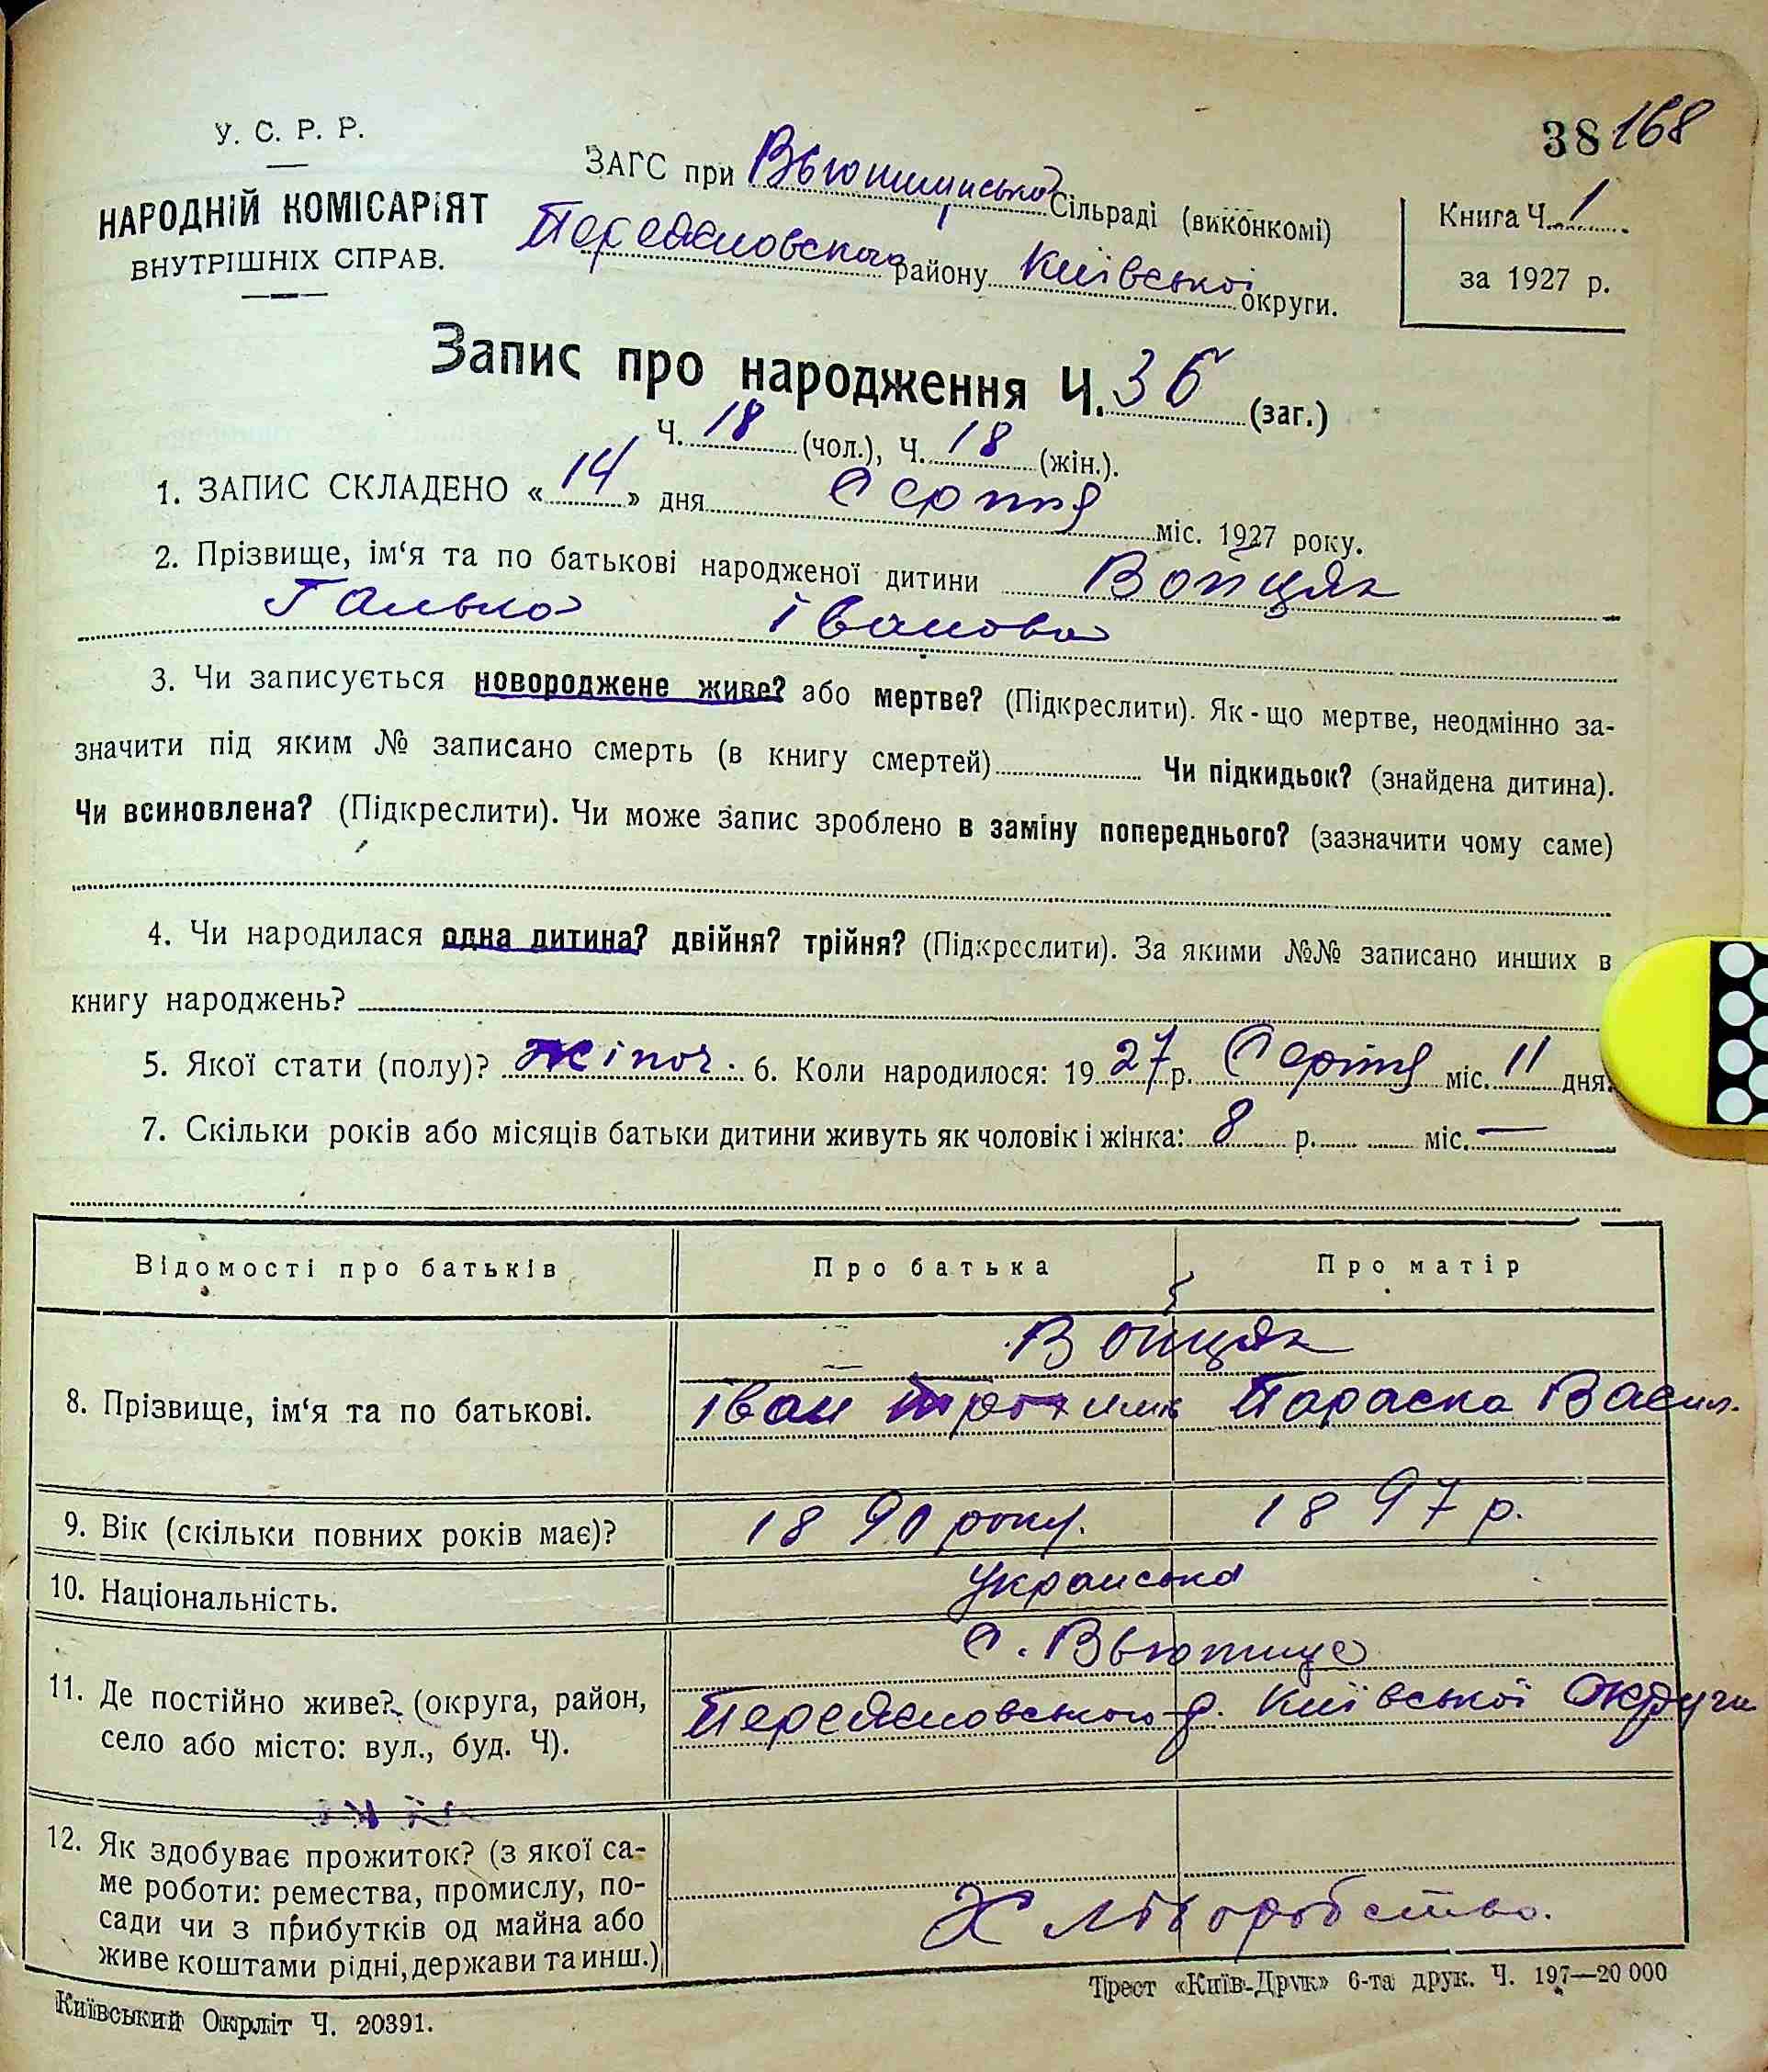 38 168
У. С. Р. Р.
НАРОДНІЙ КОМІСАРІЯТ
ВНУТРІШНІХ СПРАВ.
ЗАГС при Вьюнищської Сільраді (виконкомі)
Переяславського району Київської округи.
Книга Ч. 1
за 1927 р.
Запис про народження Ч. 36 (заг.)
Ч. 18 (чол.), Ч. 18 (жін.).
1. ЗАПИС СКЛАДЕНО « 14 » дня Серпня міс. 1927 року.
2. Прізвище, ім‘я та по батькові народженої дитини Войцях
Галька Іванова
3. Чи записується новороджене живе? або мертве? (Підкреслити). Як-що мертве, неодмінно за-
значити під яким № записано смерть (в книгу смертей) Чи підкидьок? (знайдена дитина).
Чи всиновлена? (Підкреслити). Чи може запис зроблено в заміну попереднього? (зазначити чому саме)
4. Чи народилася одна дитина? двійня? трійня? (Підкреслити). За якими №№ записано инших в
книгу народжень?
5. Якої стати (полу)? жіноч. 6. Коли народилося: 1927 р. Серпня міс. 11 дня.
7. Скільки років або місяців батьки дитини живуть як чоловік і жінка: 8 р. міс. —
Відомості про батьків Про батька Про матір
8. Прізвище, ім‘я та по батькові.
Войцях
Іван Трохимів Параска Васил.
9. Вік (скільки повних років має)? 1890 року. 1897 р.
10. Національність. Українська
11. Де постійно живе? (округа, район,
село або місто: вул., буд. Ч).
С. Вьюнище
Переяславського р. Київської Округи
12. Як здобуває прожиток? (з якої са-
ме роботи: ремества, промислу, по-
сади чи з прибутків од майна або
живе коштами рідні, держави та инш.)
Хліборобство.
Київський Окрліт Ч. 20391.
Трест «Київ-Друк» 6-та друк. Ч. 197—20 000